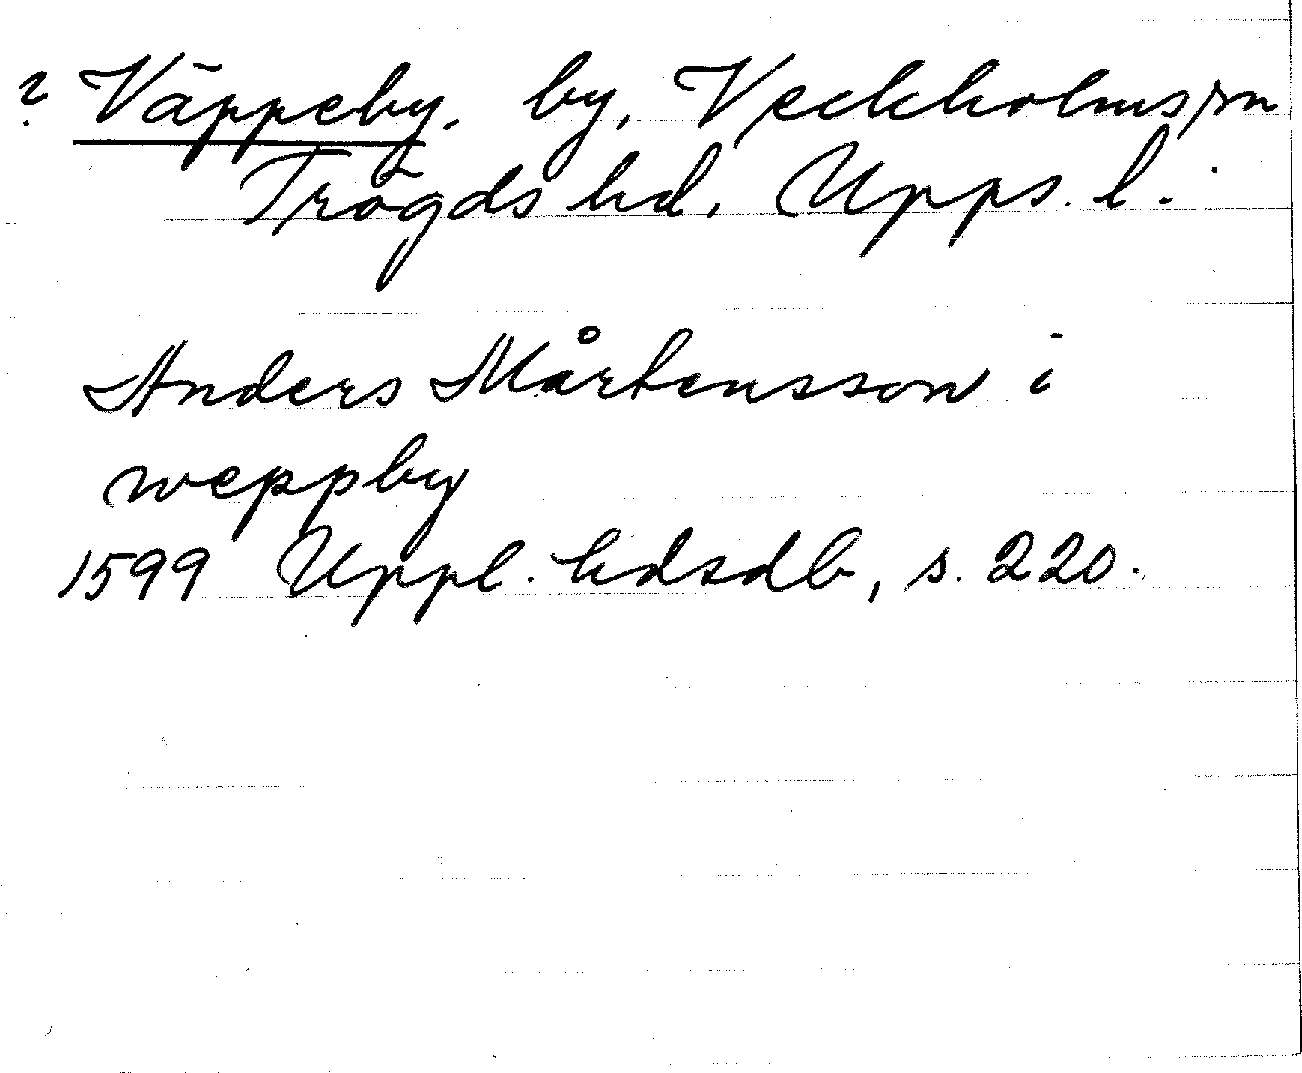 ? Väppeby. by, Veckholms sn
Trögds hd. Upps. l.
Anders Mårtensson i
weppby
1599 Uppl. hdsdb, s. 220.